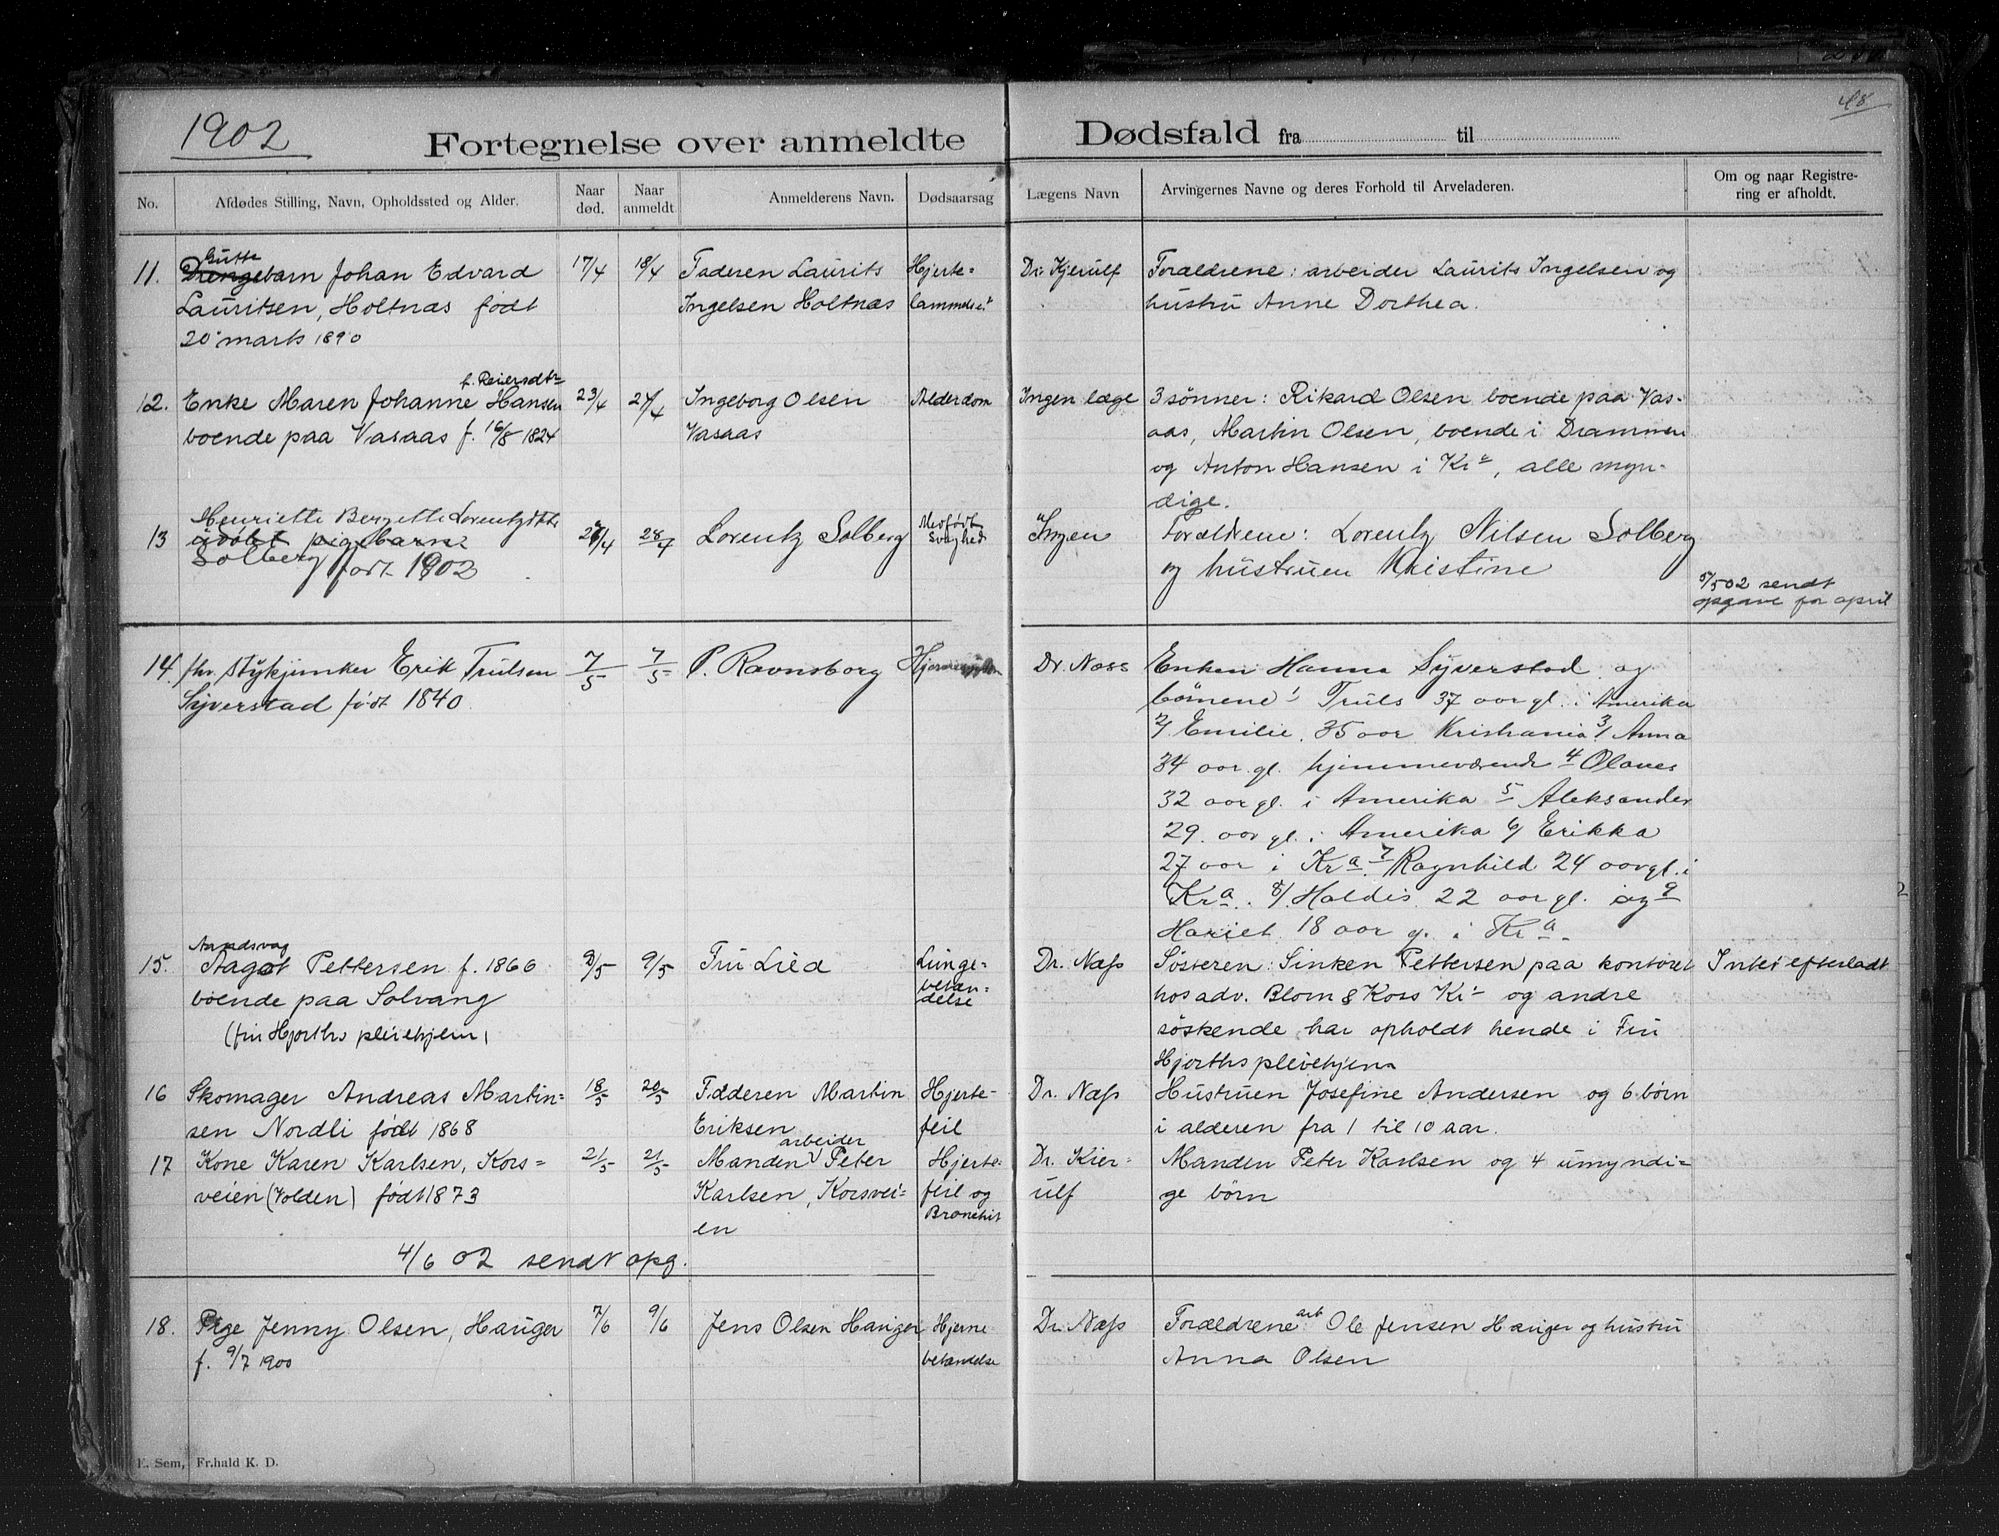 48
1902
Fortegnelse over anmeldte Dødsfald fra til
No. Afdødes Stilling, Navn, Opholdssted og Alder. Naar død. Naar anmeldt. Anmelderens Navn. Dødsaarsag Lægens Navn Arvingernes Navne og deres Forhold til Arveladeren. Om og naar Registrering er afholdt.
Gutte
11. Drengebarn Johan Edvard 17/4 18/4 Faderen Laurits Hjerte- Dr. Kjerulf Forældrene: arbeider Laurits Ingelsen og
Lauritsen, Holtnæs født Ingelsen Holtnæs lammelse hustru Anne Dorthea.
20 marts 1890
f. Reiersdtr
12. Enke Maren Johanne Hansen 23/4 24/4 Ingeborg Olsen Alderdom Ingen læge 3 sönner: Rikard Olsen boende paa Vas-
boende paa Vasaas f. 16/8 1824 Vasaas aas, Martin Olsen, boende i Drammen
og Anton Hansen i Kra, alle myn-
dige.
Henriette Bergette Lorentzdttr
13 udøbt pigebarn 26/4 28/4 Lorentz Solberg Medfødt Svaghed Ingen Forældrene: Lorentz Nilsen Solberg
Solberg født 1902 og hustruen Kristine
5/5 02 sendt
opgave for april
14. fhv. stykjunker Erik Trulsen 7/5 7/5 P. Ravnsborg Dr. Næss Enken Hanna Syverstad og
Syverstad født 1840. börnene 1 Truls 37 aar gl. i Amerika
2/ Emilie 35 aar Kristiania 3/ Anna
34 aar gl. hjemmeværende 4 Olaves
32 aar gl. i Amerika 5 Aleksander
29 aar gl. i Amerika 6/ Erikka
27 aar i Kra. 7 Ragnhild 24 aar gl. i
Kra. 8/ Haldis 22 aar gl. og 9
Hariet 18 aar g. i Kra.
Aarodsvag
15. Aagot Pettersen f. 1866 9/5 9/5 Fru Lied Lunge- Dr. Næss Søsteren: Sinken Pettersen paa kontoret Intet efterladt
boende paa Solvang betæn- hos adv. Blom & Koss Kr og andre
(fru Hjorths pleiehjem) delse søskende har opholdt hende i Fru
Hjorths pleiehjem
16 Skomager Andreas Martin- 18/5 20/5 Fdderen Martin Hjerte- Dr. Næss Hustruen Josefine Andersen og 6 børn
sen Nordli født 1868 Eriksen feil i alderen fra 1 til 10 aar.
arbeider
17 Kone Karen Karlsen, Kors- 21/5 21/5 Manden Peter Hjerte- Dr. Kier- Manden Peter Karlsen og 4 umyndi-
veien (Volden) født 1873 Karlsen, Korsvei- feil og ulf ge børn
en Bronchit
4/6 02 sendt opg.
18. Pige Jenny Olsen, Hauger 7/6 9/6 Jens Olsen Hauger Hjerne Dr. Næss Forældrene arb Ole Jensen Hauger og hustru
f. 9/7 1900 betændelse Anna Olsen
E. Sem, Fr.hald K. D.